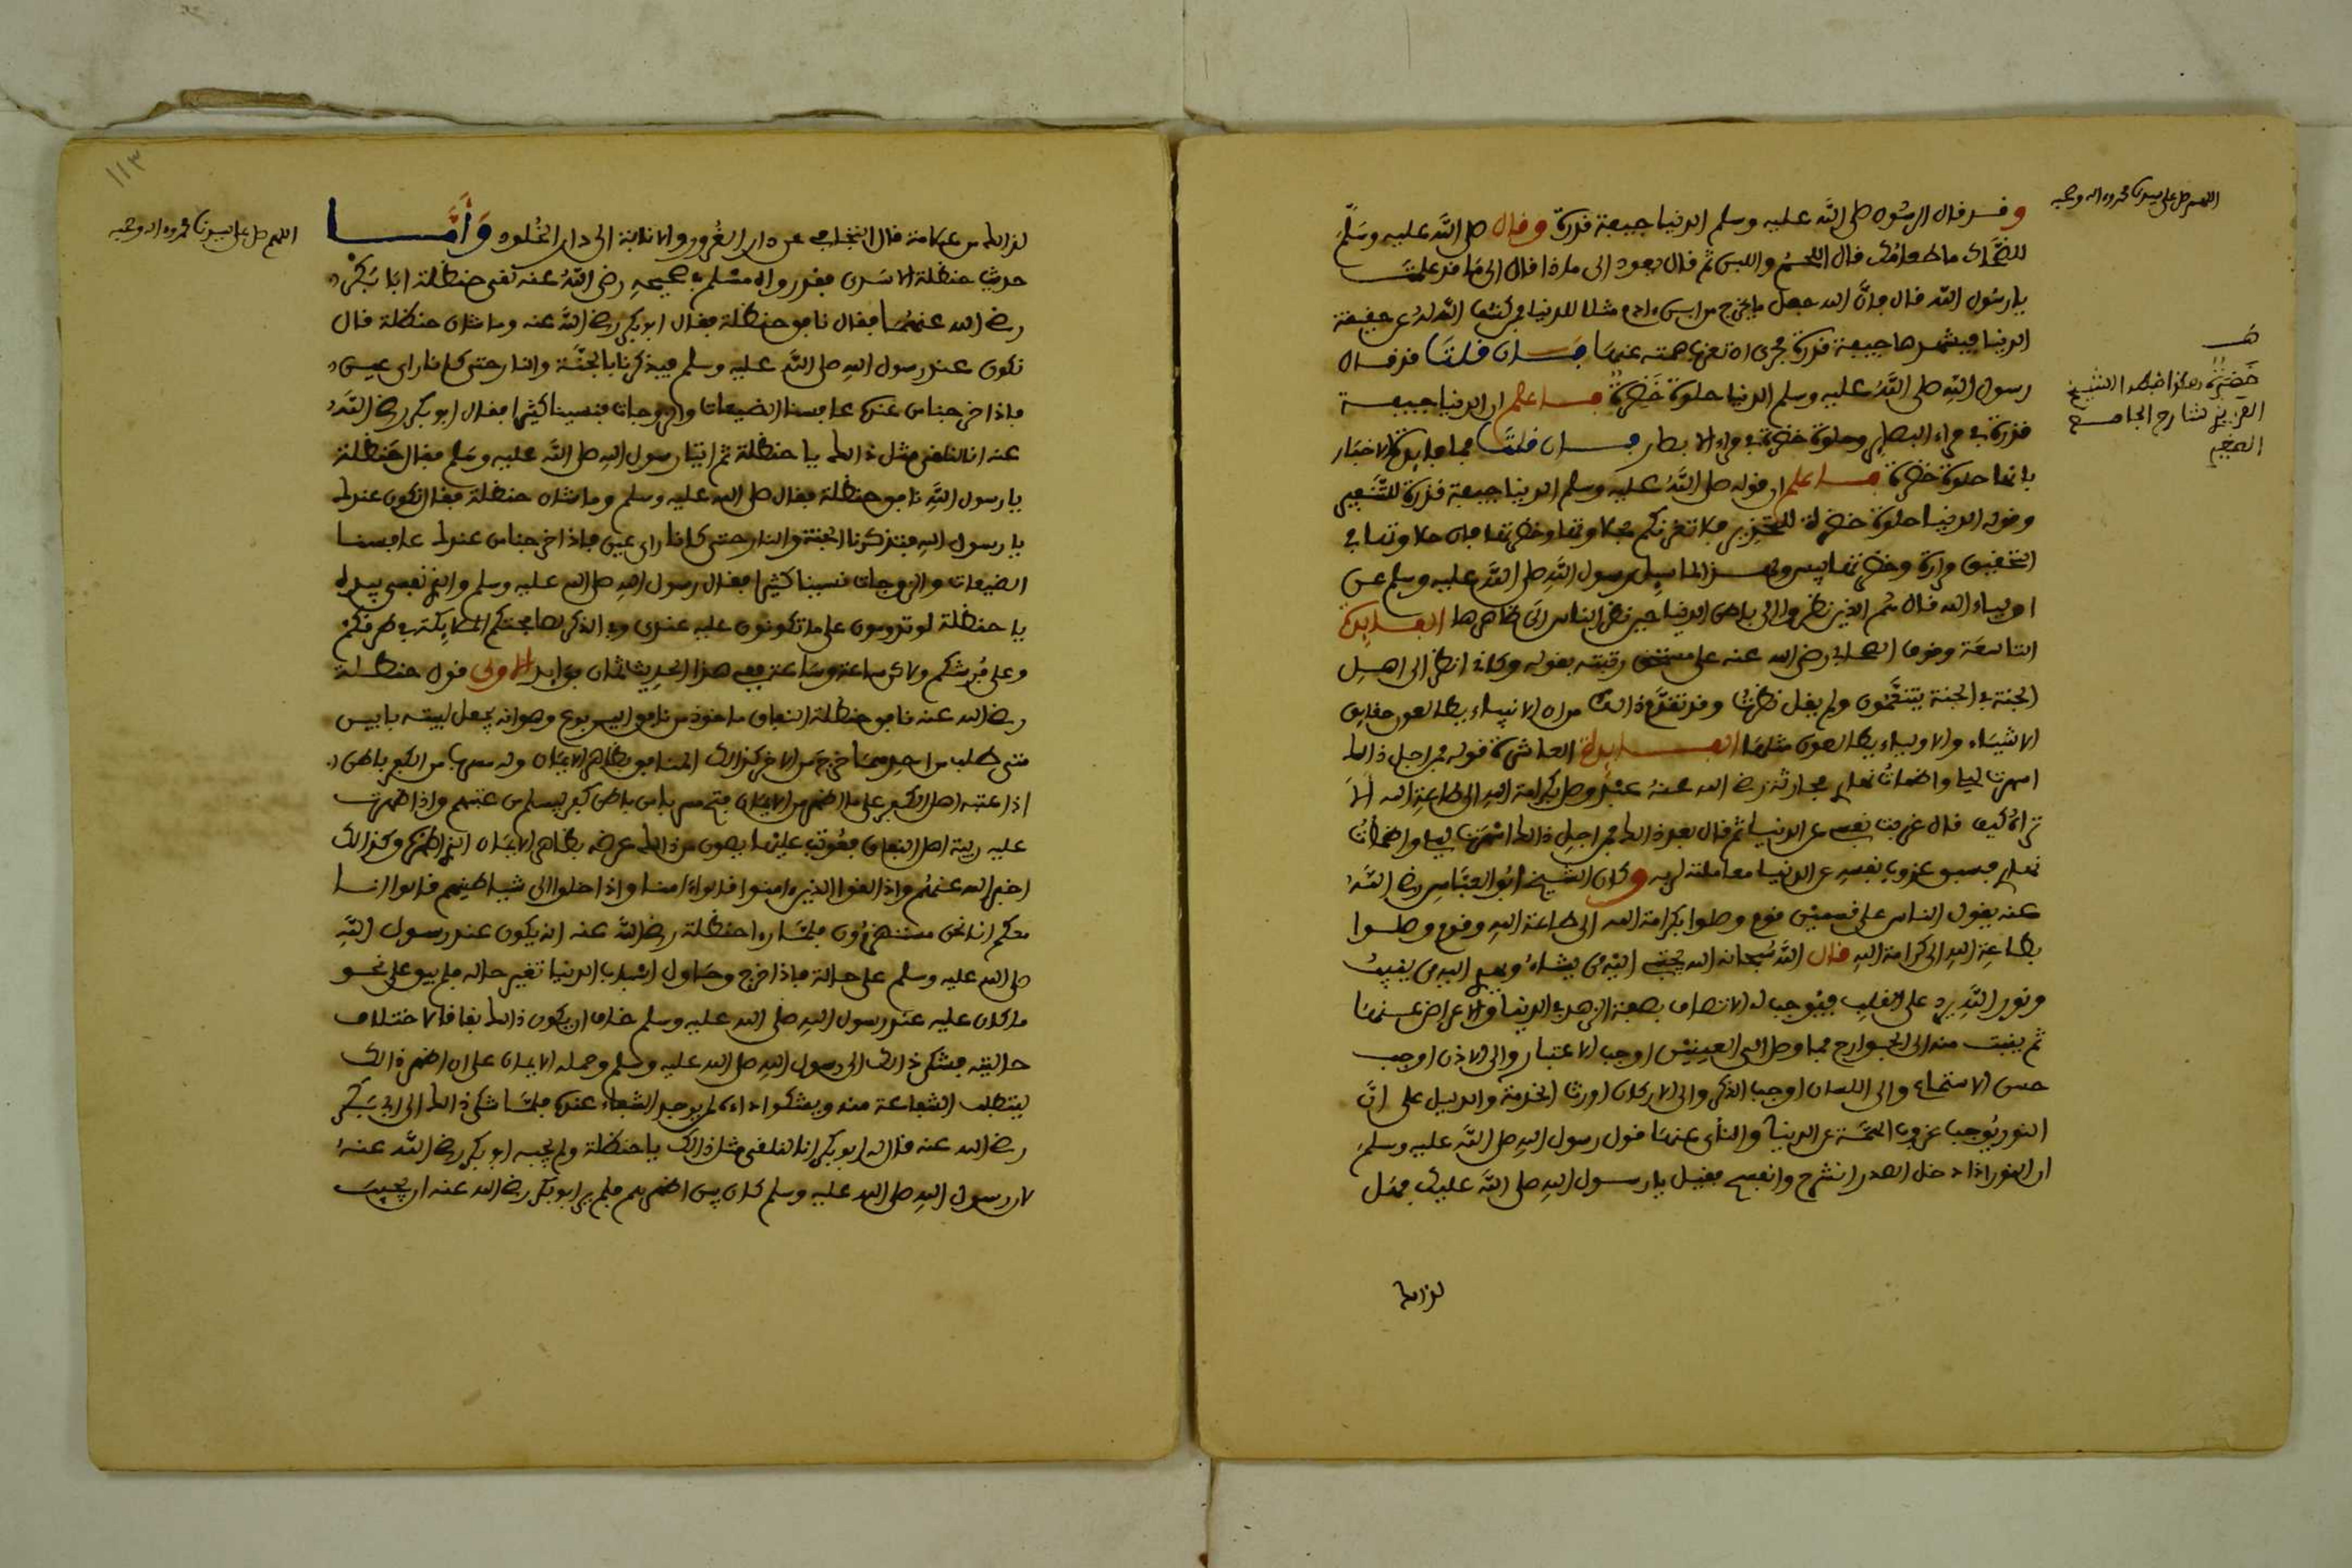 اللهم صل على سيدنا محمد وءاله وصحبه
وقد قال الرسول صلى الله عليه وسلم الدنيا جيفة قذرة وقال صلى الله عليه وسلم
للضحاك ما طعامك قال اللحم واللبن ثم قال يعود الى ماذا قال الى ما قد علمت
يا رسول الله قال فان الله جعل ما يخرج من ابن ءادم مثلا للدنيا فمن كشف الله له عن حقيقة
الدنيا فيشهدها جيفة قذرة فحرى ان تعزف همته عنها فان قلت قد قال
رسول الله صلى الله عليه وسلم الدنيا حلوة خضرة فاعلم ان الدنيا جيفة
قذرة في مراء البصاير وحلوة خضرة في مراء الابصار فان قلت فما فايدة الاخبار
بانها حلوة خضرة فاعلم ان قوله صلى الله عليه وسلم الدنيا جيفة قذرة للتنفير
وقوله الدنيا حلوة خضرة للتحذير فلا تغرنكم بحلاوتها وخضرتها فان حلاوتها في
التحقيق مرارة وخضرتها يبس ولهذا لما سيل رسول الله صلى الله عليه وسلم عن
اولياء الله قال هم الذين نظروا الى باطن الدنيا حين نظر الناس الى ظاهرها الفايدة
التاسعة وقوف الصحابي رضي الله عنه على رتبته بقوله وكاني انظر الى اهل
الجنة في الجنة يتنعمون ولم يقل نظرت وقد تقدم ذالك من ان الانبياء يطالعون حقايق
الاشياء والاولياء يطالعون مثلها الفايدة العاشرة قوله فمن اجل ذالك
اسهرت ليلي واضمات نهاري فحارثة رضي الله عنه عبد وصل بكرامة الله الى طاعة الله الا
تراه كيف قال عزفت نفسي عن الدنيا ثم قال بعد ذالك فمن اجل ذالك اسهرت ليلي واضمات
نهاري فسبق عزوف نفسه عن الدنيا معاملته لربه وكان الشيخ ابو العباس رضي الله
عنه يقول الناس على قسمين قوم وصلوا بكرامة الله الى طاعة الله وقوم وصلوا
بطاعة الله الى كرامة الله قال الله سبحانه الله يجتبي اليه من يشاء ويهدي اليه من ينيب
ونور الله يرد على القلب فيوجب له الاتصاف بصفة الزهد في الدنيا والاعراض عنها
ثم ينبث منه الى الجوارح فما وصل الى العينين اوجب الاعتبار والى الاذن اوجب
حسن الاستماع والى اللسان اوجب الذكر والى الاركان اورث الخدمة والدليل على ان
النور يوجب عزوف الهمة عن الدنيا والناي عنها قول رسول الله صلى الله عليه وسلم
ان النور اذا دخل الصدر انشرح وانفسح فقيل يا رسول الله صلى الله عليك فهل
لذالك
هـ
خضرة هكذا ضبطه الشيخ
العزيزي شارح الجامع
الصغير
١١٣
اللهم صل على سيدنا محمد وءاله وصحبه
لذالك من علامة قال التجافي عن دار الغرور والانابة الى دار الخلود وأما
حديث حنظلة الاسدي فقد رواه مسلم في صحيحه رضي الله عنه لقي حنظلة ابا بكر
رضي الله عنهما فقال نافق حنظلة فقال ابو بكر رضي الله عنه وما شان حنظلة قال
نكون عند رسول الله صلى الله عليه وسلم فيذكرنا بالجنة والنار حتى كانا راى عين
فاذا خرجنا من عنده عافسنا الضيعات والزوجات فنسينا كثيرا فقال ابو بكر رضي الله
عنه انا لنلقى مثل ذالك يا حنظلة ثم اتينا رسول الله صلى الله عليه وسلم فقال حنظلة
يا رسول الله نافق حنظلة فقال صلى الله عليه وسلم وما شان حنظلة فقال نكون عندك
يا رسول الله فتذكرنا الجنة والنار حتى كانا راى عين فاذا خرجنا من عندك عافسنا
الضيعات والزوجات نسينا كثيرا فقال رسول الله صلى الله عليه وسلم والذي نفسي بيده
يا حنظلة لو تدومون على ما تكونون عليه عندي وفي الذكر لصافحتكم الملايكة في طرقكم
وعلى فرشكم ولاكن ساعة وساعة ففي هذا الحديث ثمان فوايد الاولى قول حنظلة
رضي الله عنه نافق حنظلة النفاق ماخوذ من نافق اليربوع وهو انه يجعل لبيته بابين
متى طلب من احدهما خرج من الاخر كذالك المنافق بظاهر الايمان وله مسرب من الكفر باطن
اذا عتبه اهل الكفر على ما اظهر من الايمان فتح سربا من باطن كفر ليسلم من عتبهم واذا ظهرت
عليه ريبة اهل النفاق فعوتب عليها يصون من ذالك عرضه بظاهر الايمان الذي اظهره وكذالك
اخبر الله عنهم واذا لقوا الذين ءامنوا قالوا ءامنا واذا خلوا الى شياطينهم قالوا انا
معكم انما نحن مستهزءون فلما راء حنظلة رضي الله عنه انه يكون عند رسول الله
صلى الله عليه وسلم على حالة فاذا خرج وحاول اسباب الدنيا تغير حاله فلم يبق على نحو
ما كان عليه عند رسول الله صلى الله عليه وسلم خاف ان يكون ذالك نفاقا لاختلاف
حالتيه فشكى ذالك الى رسول الله صلى الله عليه وسلم وحمله الايمان على ان اظهر ذالك
ليتطلب الشفاعة منه ويشكوا داءه لمن يوجد الشفاء عنده فلما شكى ذالك الى ابي بكر
رضي الله عنه قال له ابو بكر انا لنلقى مثل ذالك يا حنظلة ولم يجبه ابو بكر رضي الله عنه
لان رسول الله صلى الله عليه وسلم كان بين اظهرهم فلم ير ابو بكر رضي الله عنه ان يجيب